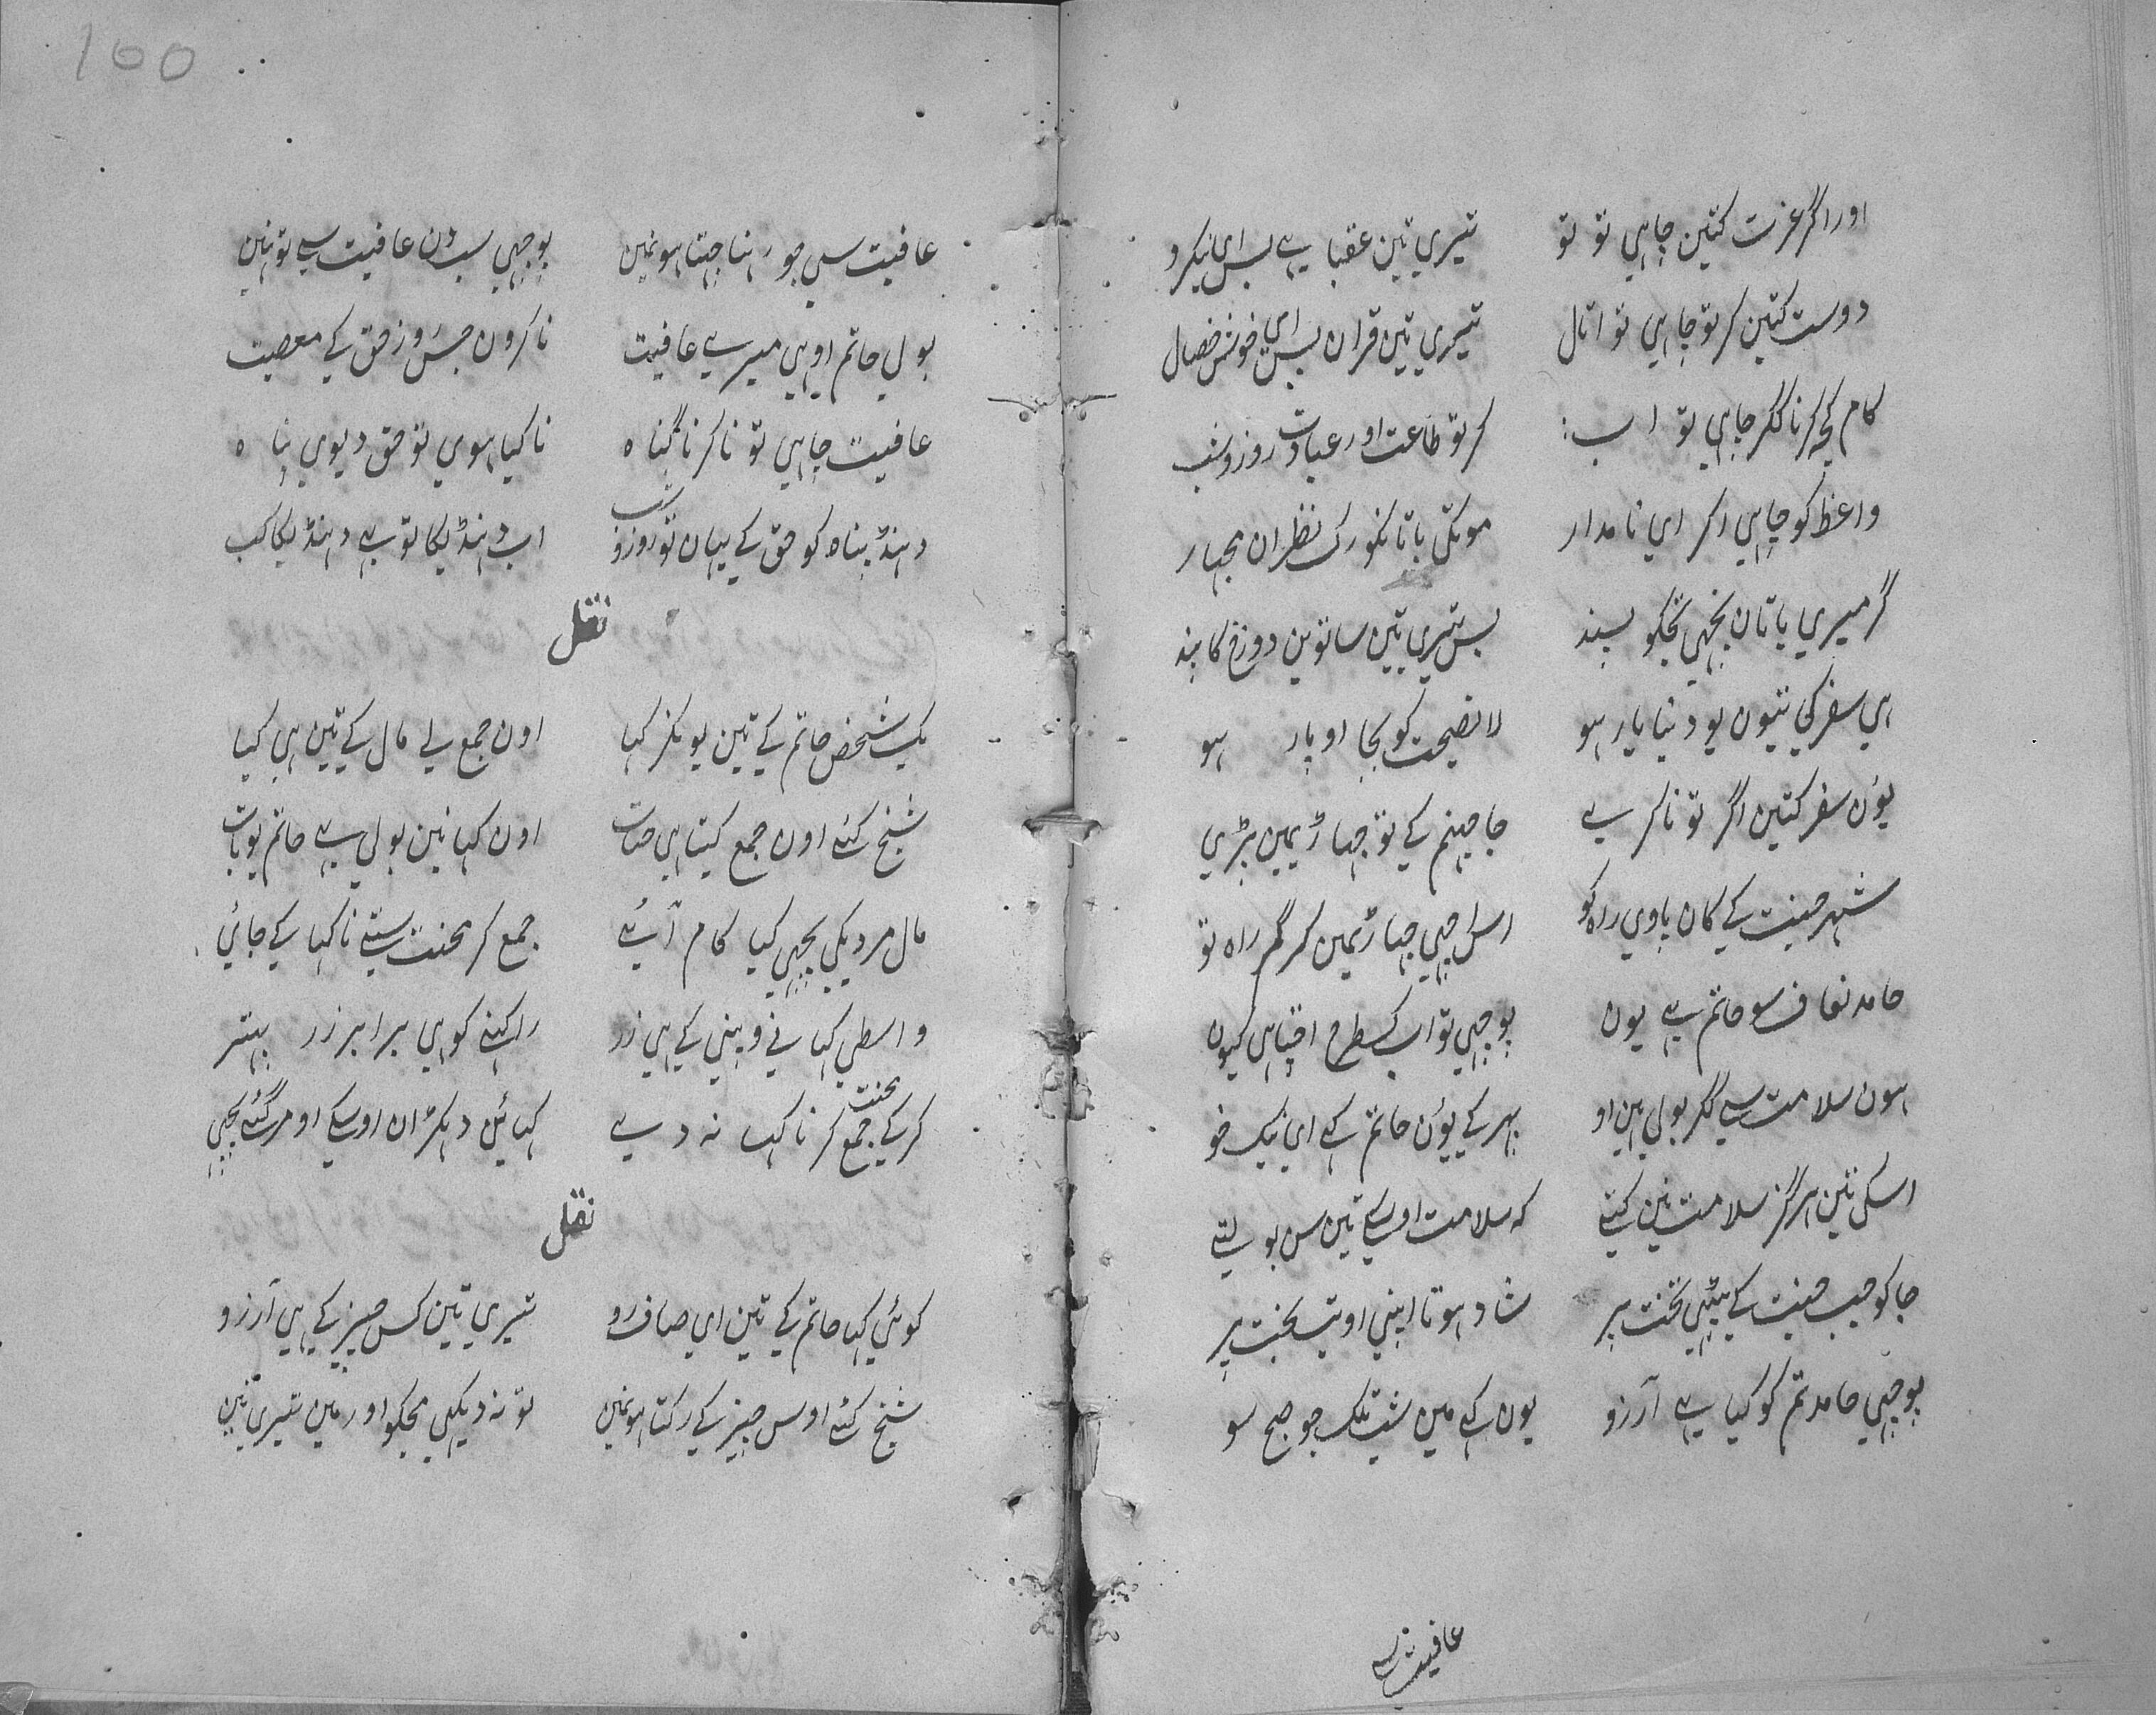 اور اگر عزت کتین چاہی تو تو تیری تین عقبا ہے بس ای نیکرو
دوست کتین کر تو چاہی تو اتال تیری تین قران بس ای خوش خصال
کام کچہ کرنا ککر چاہی تو اب کر تو طاعت اور عبادت روز و شب
واعظ کو چاہی اکر ای نامدار موتکی باتانکو رک نظران مجہار
گر میری باتان نچہی تجکو پسند بس تیری تین ساتوین دوزخ کا بند
ہی سفر کی نتیون یو دنیا یار ہو لا نصیحت کو بجا او یار ہو
یوں سفر کتین اگر تو نا کرے جا جہنم کے تو جہاڑیمین پڑی
شہر جنت کے کان پاوی راہ کو اس اچہی جہاڑیمین کر گم راہ تو
حامد لفاف سو حاتم سے یون پوچہی تو اب کسطرح اچتا ہی کیون
ہون سلامت سے ککر بولی ہین او پہر کے یوں حاتم کہے ای نیک خو
اسکی تین ہرگز سلامت نین کہتے کہ سلامت اوسکے تین سن بولتے
جا کو جب جنت کے بیٹہی تخت پر شاد ہوتا اپنی او تب بخت پر
پوچہی حامد تم کو کیا ہے آرزو یون کہے مین شب تلک جو صبح سو
عافیت سے
100
عافیت سی جو رہنا چہتا ہو نمین پوچہی سب دن عافیت سے تو نہین
بولی حاتم او ہی میرے عافیت نا کرون جس روز حق کے معصیت
عافیت چاہی تو نا کرنا گناہ نا کیا ہوی تو حق دیوی پناہ
دہنڈ پناہ کو حق کے یہان تو روز و شب اب دہنڈیکا تو ہے دہنڈیکا کب
نقل
یک شخص حاتم کے تین یو نکر کہا اون جمع لے مال کے تین ہی کیا
شیخ کئے اون جمع کیتا ہی حیات اون کہا نین بولی ہے حاتم یو بات
مال مردیکی بچہی کیا کام آئے جمع کر محنت ستے نا کہا کے جائے
واسطی کہانے و پینی کے ہی زر راکہنے کو ہی برابر زر پہتر
کر کے محنت جمع کر نا کہا نہ دے کہائیں دہکڑان اوسکے او مر گئے بچہی
نقل
کوئی کہا حاتم کے تین ای صاف رو تیری تین کس چیز کے ہی آرزو
شیخ کئے اوس چیز کے رکتا ہو نمین تو نہ دیکہی مجکو اور مین تیری تین